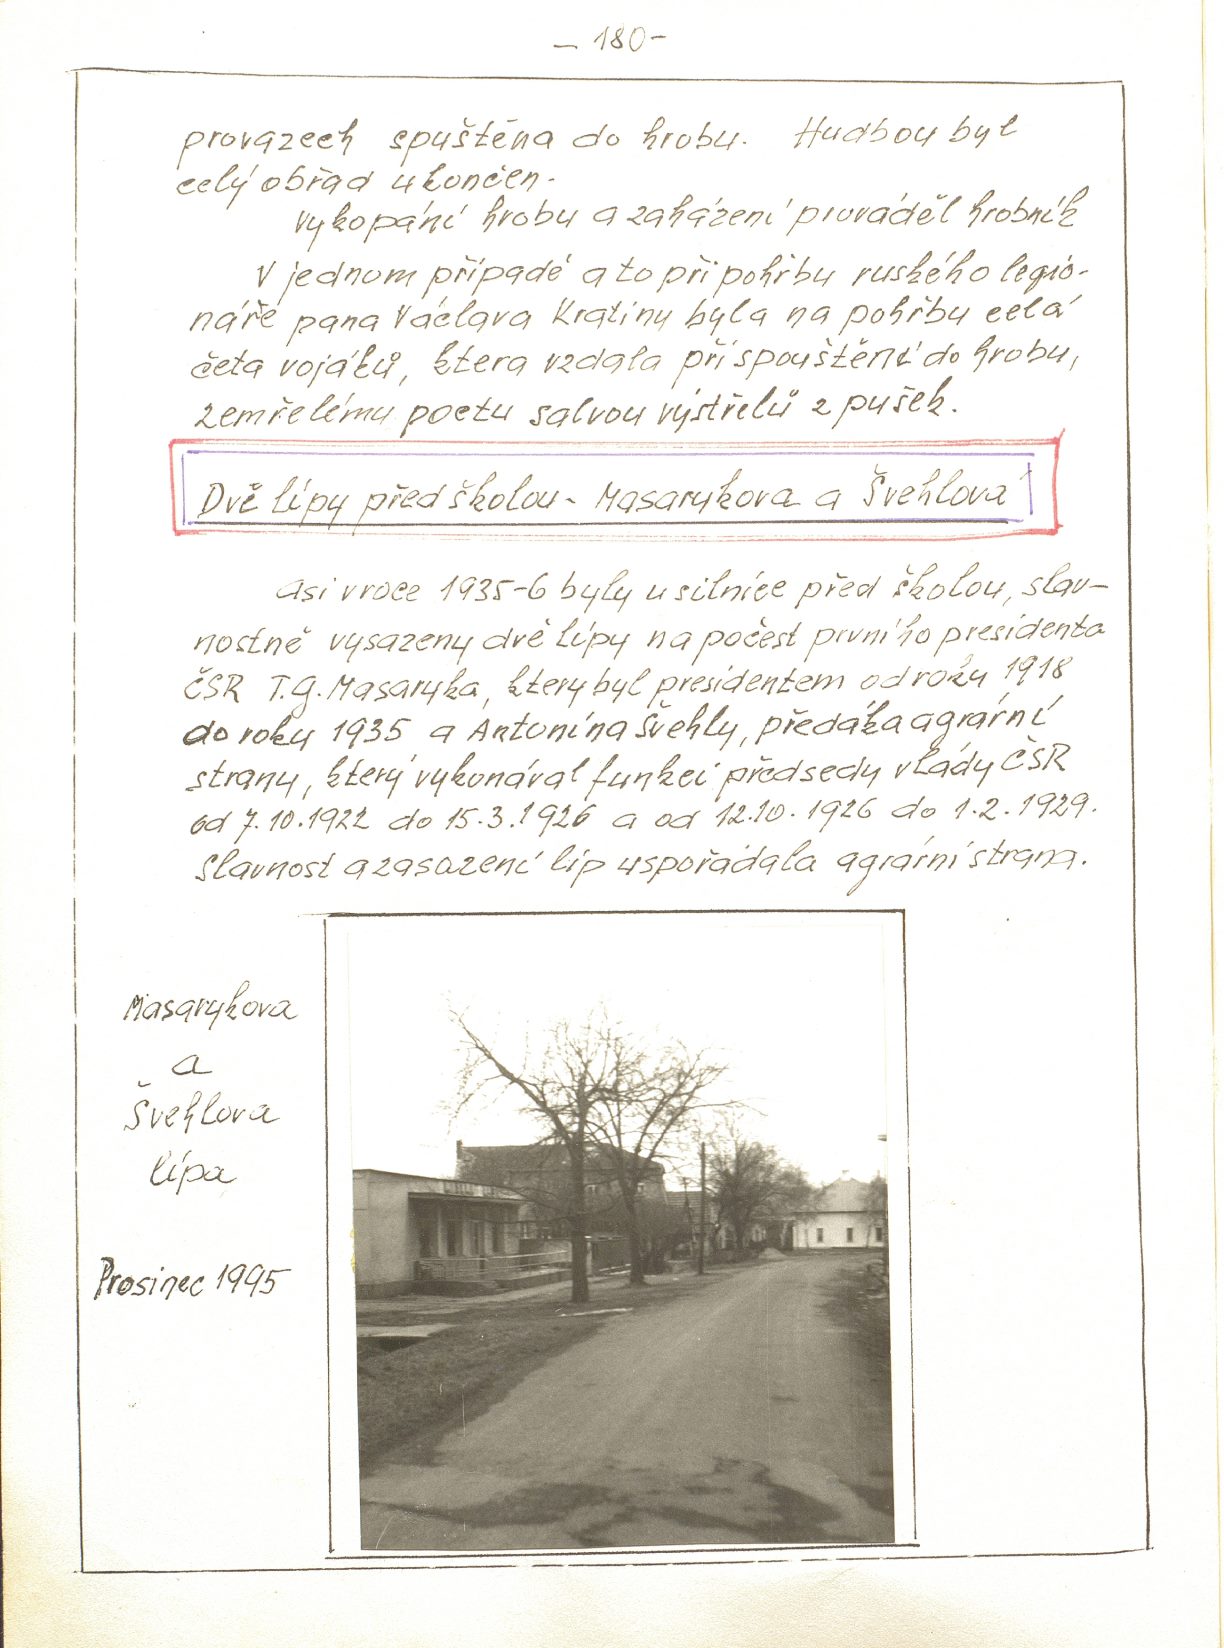 – 180 –
provazech spuštěna do hrobu. Hudbou byl
celý obřad ukončen.
Vykopání hrobu a zaházení prováděl hrobník
V jednom případě a to při pohřbu ruského legio-
náře pana Václava Kratiny byla na pohřbu celá
četa vojáků, ktera vzdala při spouštění do hrobu,
zemřelému poctu salvou výstřelů z pušek.
Dvě lípy před školou - Masarykova a Švehlova
Asi v roce 1935-6 byly u silnice před školou, slav-
nostně vysazeny dvě lípy na počest prvního presidenta
ČSR T.G. Masaryka, který byl presidentem od roku 1918
do roku 1935 a Antonína Švehly, předáka agrární
strany, který vykonával funkci předsedy vlády ČSR
od 7.10.1922 do 15.3.1926 a od 12.10.1926 do 1.2.1929.
Slavnost a zasazení lip uspořádala agrární strana.
Masarykova
a
Švehlova
lípa
Prosinec 1995